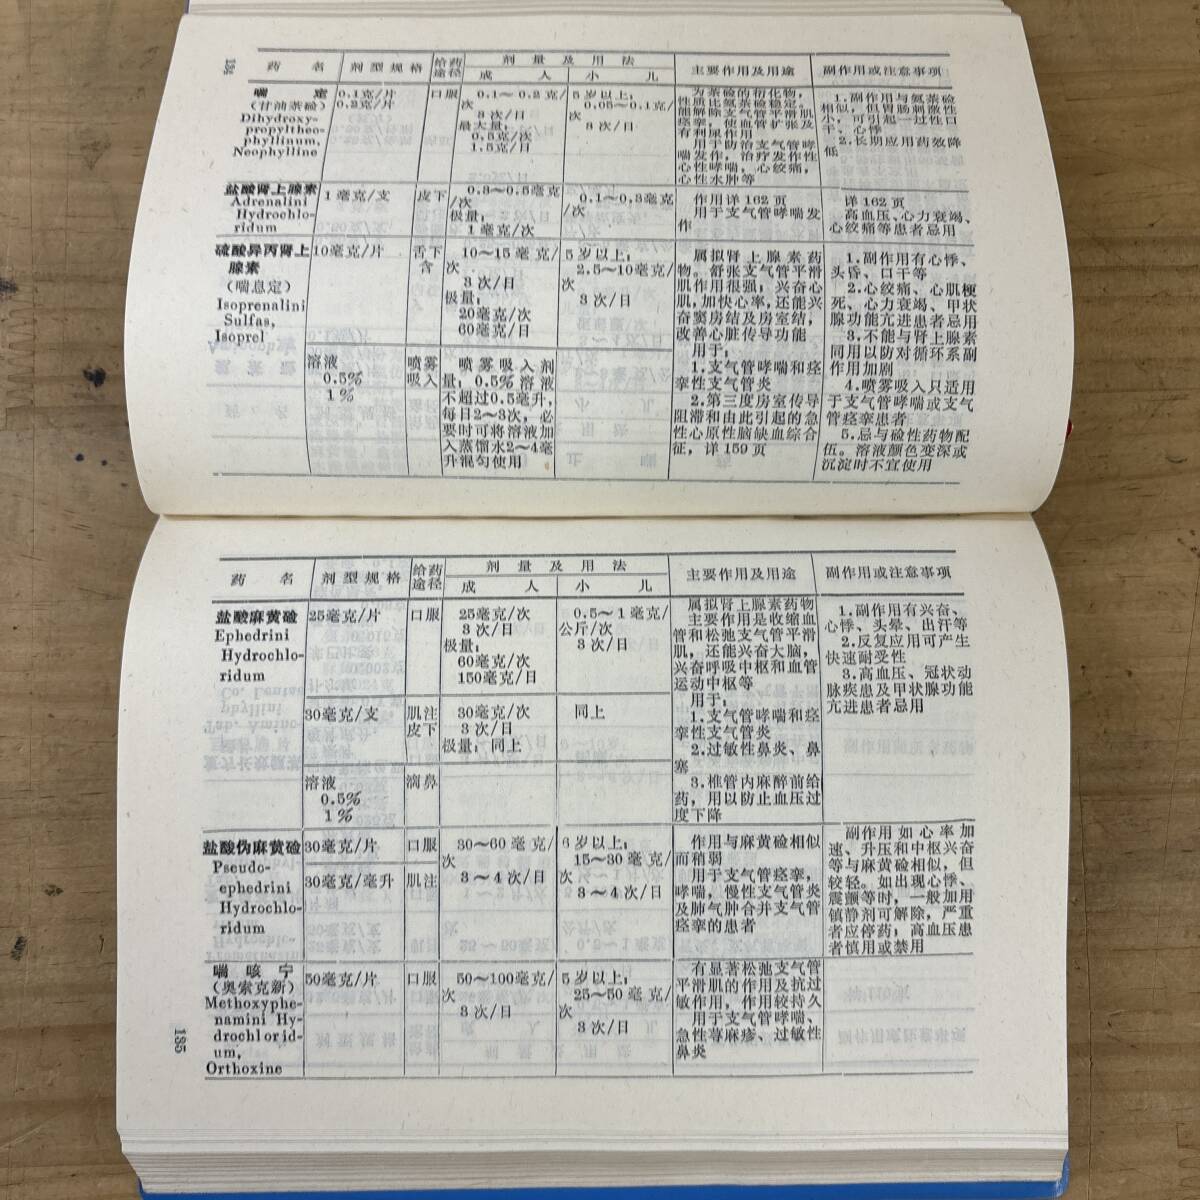 134
药 名
剂 型 规 格
给药
途径
剂 量 及 用 法
成 人
小 儿
主要作用及用途
副作用或注意事项
喘 定
(甘油茶碱)
Dihydroxy-
propyltheo-
phyllinum,
Neophylline
0.1克/片
0.2克/片
口服
0.1～0.2克/
次
3次/日
最大量:
0.5克/次
1.5克/日
5岁以上:
0.05～0.1克/
次
3次/日
为茶碱的衍化物,
性质比氨茶碱稳定。
能解除支气管平滑肌
痉挛,使血管扩张及
有利尿作用
用于防治支气管哮
喘发作,治疗发作性
心性哮喘,心绞痛,
心性水肿等
1.副作用与氨茶碱
相似,但胃肠刺激性
小,可引起一过性口
干、心悸
2.长期应用药效降
低
盐酸肾上腺素
Adrenalini
Hydrochlo-
ridum
1毫克/支
皮下
0.3～0.5毫克
/次
极量:
1毫克/次
0.1～0.3毫克
/次
作用详162页
用于支气管哮喘发
作
详162页
高血压、心力衰竭、
心绞痛等患者忌用
硫酸异丙肾上
腺素
(喘息定)
Isoprenalini
Sulfas,
Isoprel
10毫克/片
舌下
含
10～15毫克/
次
3次/日
极量:
20毫克/次
60毫克/日
5岁以上:
2.5～10毫克/
次
3次/日
属拟肾上腺素药
物。舒张支气管平滑
肌作用很强;兴奋心
肌,加快心率,还能兴
奋窦房结及房室结,
改善心脏传导功能
用于:
1.支气管哮喘和痉
挛性支气管炎
2.第三度房室传导
阻滞和由此引起的急
性心原性脑缺血综合
征,详159页
1.副作用有心悸、
头昏、口干等
2.心绞痛、心肌梗
死、心力衰竭、甲状
腺功能亢进患者忌用
3.不能与肾上腺素
同用以防对循环系副
作用加剧
4.喷雾吸入只适用
于支气管哮喘或支气
管痉挛患者
5.忌与碱性药物配
伍。溶液颜色变深或
沉淀时不宜使用
溶液
0.5%
1%
喷雾
吸入
喷雾吸入剂
量:0.5%溶液
不超过0.5毫升,
每日2～3次,必
要时可将溶液加
入蒸馏水2～4毫
升混匀使用
药 名
剂 型 规 格
给药
途径
剂 量 及 用 法
成 人
小 儿
主要作用及用途
副作用或注意事项
盐酸麻黄硷
Ephedrini
Hydrochlo-
ridum
25毫克/片
口服
25毫克/次
3次/日
极量:
60毫克/次
150毫克/日
0.5～1毫克/
公斤/次
3次/日
属拟肾上腺素药物
主要作用是收缩血
管和松弛支气管平滑
肌,还能兴奋大脑,
兴奋呼吸中枢和血管
运动中枢等
用于:
1.支气管哮喘和痉
挛性支气管炎
2.过敏性鼻炎、鼻
塞
3.椎管内麻醉前给
药,用以防止血压过
度下降
1.副作用有兴奋、
心悸、头晕、出汗等
2.反复应用可产生
快速耐受性
3.高血压、冠状动
脉疾患及甲状腺功能
亢进患者忌用
30毫克/支
肌注
皮下
30毫克/次
3次/日
极量:同上
同上
溶液
0.5%
1%
滴鼻
盐酸伪麻黄硷
Pseudo-
ephedrini
Hydrochlo-
ridum
30毫克/片
口服
30毫克/毫升
肌注
30～60毫克/
次
3～4次/日
6岁以上:
15～30毫克/
次
3～4次/日
作用与麻黄硷相似
而稍弱
用于支气管痉挛,
哮喘,慢性支气管炎
及肺气肿合并支气管
痉挛的患者
副作用如心率加
速、升压和中枢兴奋
等与麻黄硷相似,但
较轻。如出现心悸、
震颤等时,一般加用
镇静剂可解除,严重
者应停药;高血压患
者慎用或禁用
喘 咳 宁
(奥索克新)
Methoxyphe-
namini Hy-
drochlorid-
um,
Orthoxine
50毫克/片
口服
50～100毫克/
次
3次/日
5岁以上:
25～50毫克/
次
3次/日
有显著松弛支气管
平滑肌的作用及抗过
敏作用,作用较持久
用于支气管哮喘、
急性荨麻疹、过敏性
鼻炎
135